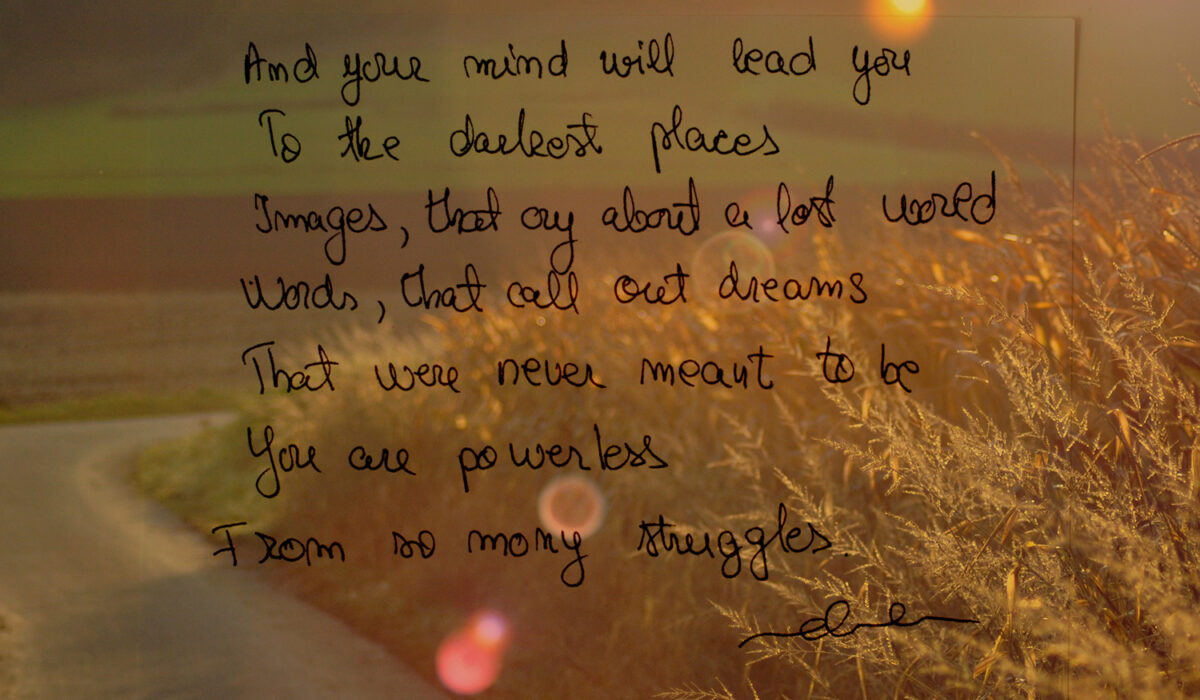 And your mind will lead you
To the darkest places
Images, that cry about a lost world
Words, that call out dreams
That were never meant to be
You are powerless
From so many struggles.